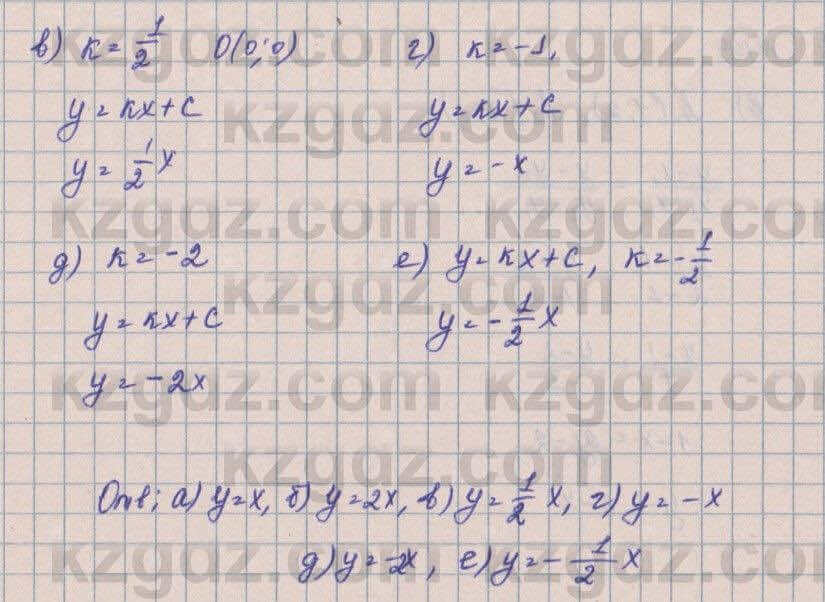 в) к = 1/2   O(0;0)
y = кx + c
y = 1/2 x
г) к = -1,
y = кx + c
y = -x
д) к = -2
y = кx + c
y = -2x
е) y = кx + c, к = -1/2
y = -1/2 x
Отв; а) y = x, б) y = 2x, в) y = 1/2 x, г) y = -x
д) y = -2x, е) y = -1/2 x
kzgdz.com
kzgdz.com
kzgdz.com
kzgdz.com
kzgdz.com
kzgdz.com
kzgdz.com
kzgdz.com
kzgdz.com
kzgdz.com
kzgdz.com